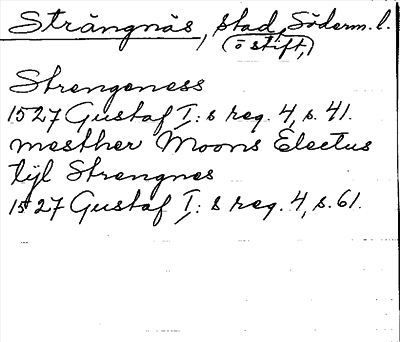 Strängnäs, stad, Söderm. l.
(o stift,)
Strengeness
1527 Gustaf I: s reg. 4, s. 41.
mesther Moons Electus
tijl Strengnes
1527 Gustaf I: s reg. 4, s. 61.